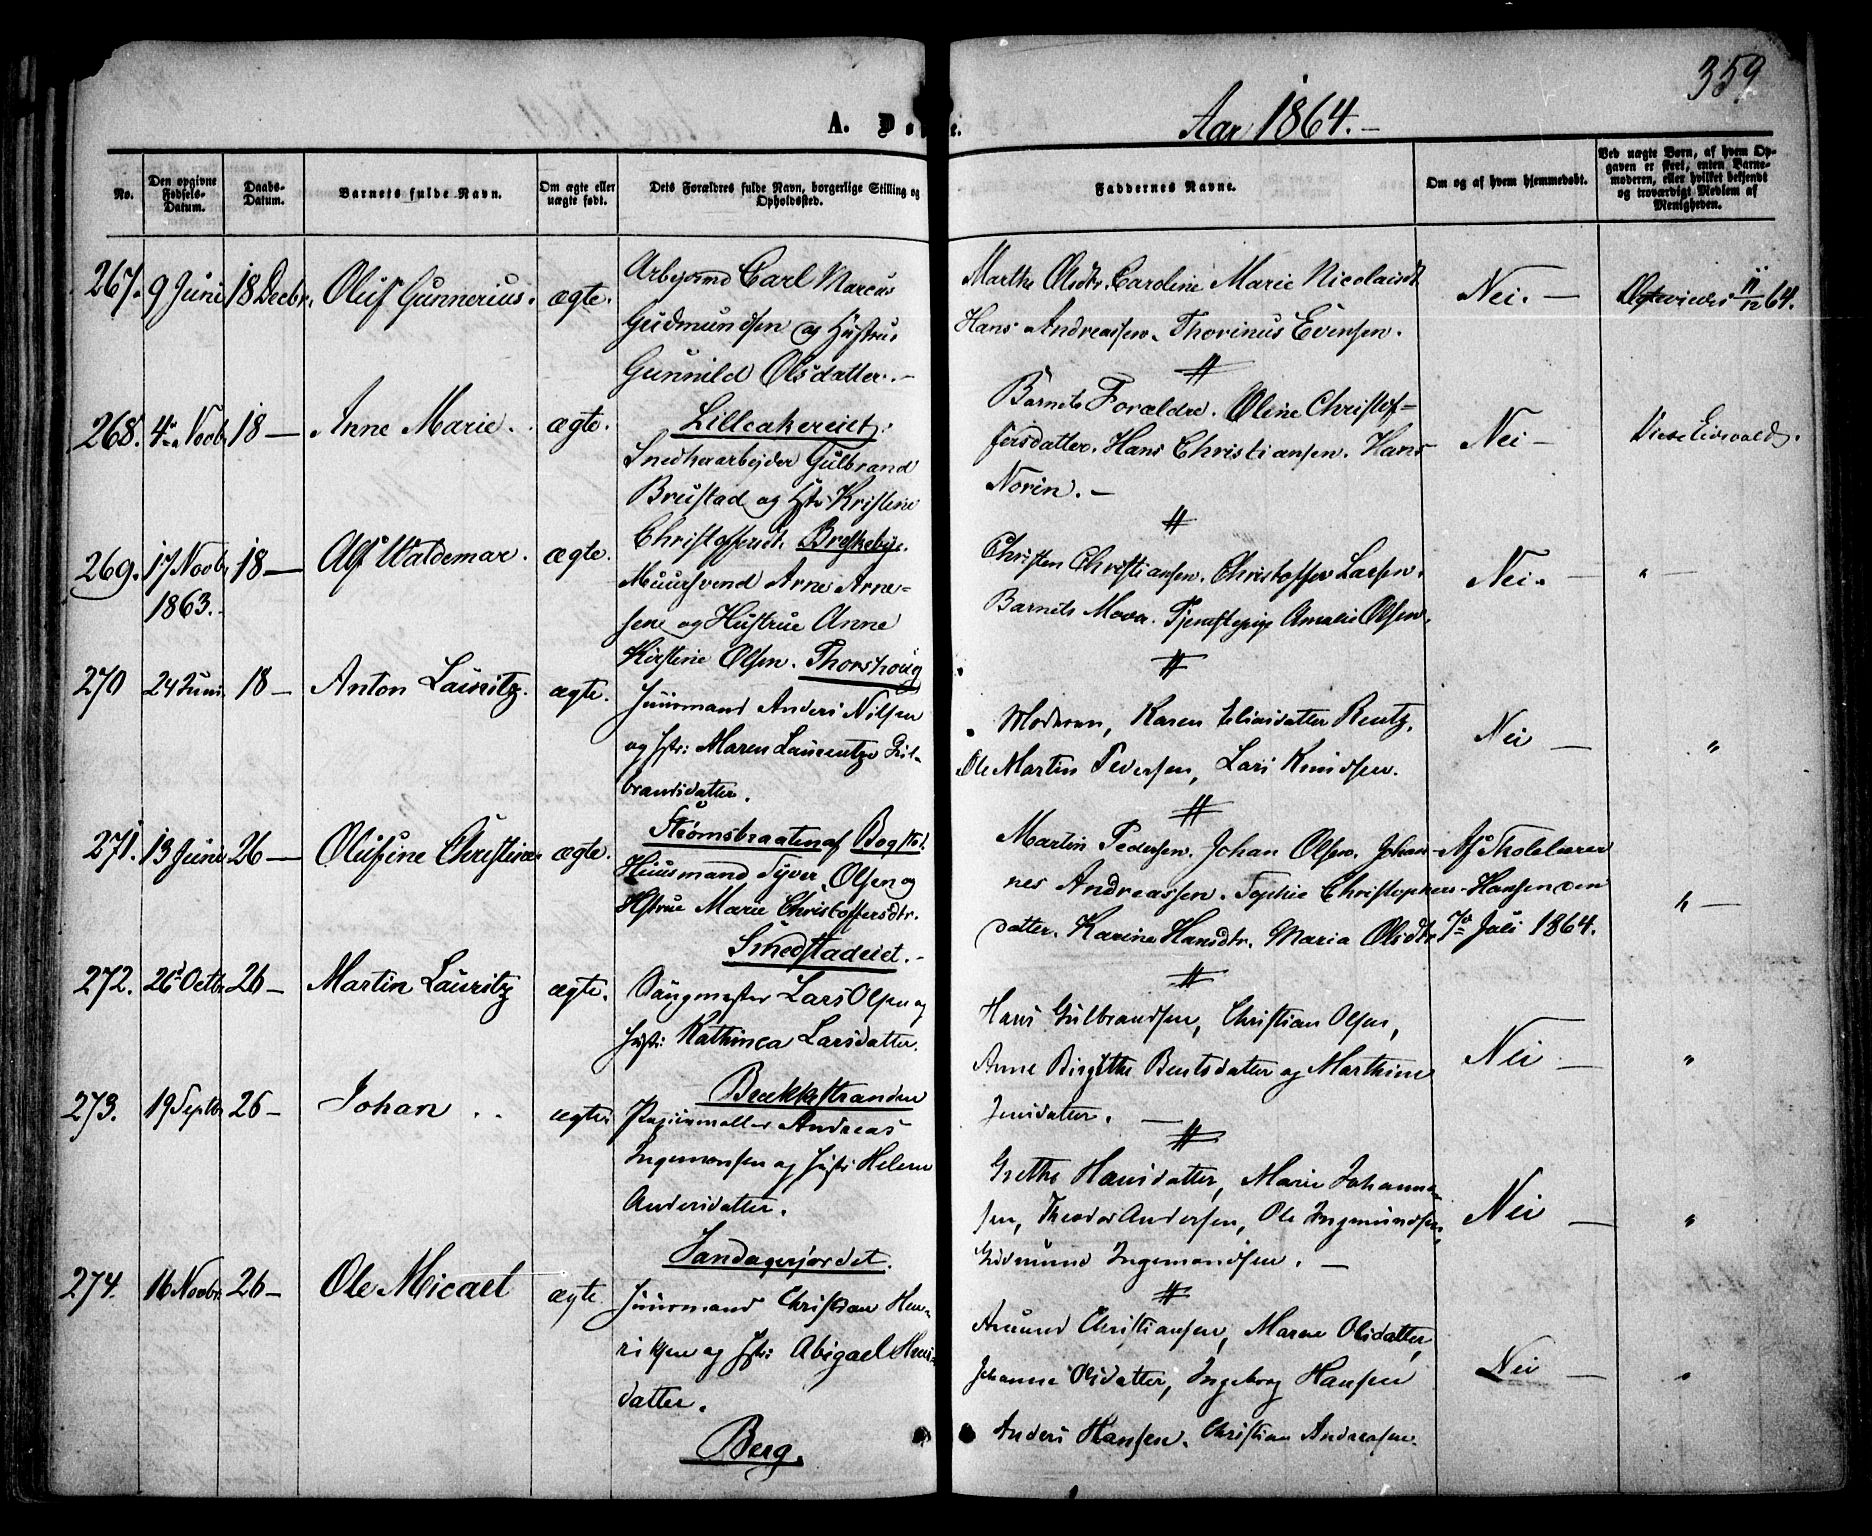 359
A. Døbte.
Aar 1864.
No.
Den opgivne Fødsels-Datum.
Daabs-Datum.
Barnets fulde Navn.
Om ægte eller uægte født.
Dets Forældres fulde Navn, borgerlige Stilling og Opholdssted.
Faddernes Navne.
Om og af hvem hjemmedøbt.
Ved uægte Børn, af hvem Opgaven er skeet, enten Barnemoderen, eller hvilket bekjendt og troværdigt Medlem af Menigheden.
267. 9 Juni 18 Decbr. Oluf Gunnerius. ægte.
Arbejdsmd Carl Marcus
Gudmundsen og Hustrue
Gunnild Olsdatter. -
Lilleakereiet.
Marthe Olsdtr. Caroline Marie Nicolaisdt.
Hans Andreassen. Thorinus Evensen.
Nei. -
Ægteviedes 11/12 64.
268. 4de Novbr. 18 - Anne Marie. ægte.
Snedkerarbejder Gulbrand
Brustad og Hstr. Kristine
Christoffersdt. Briskebye.
Barnets Forældre. Oline Christof-
fersdatter. Hans Christiansen. Hans
Norin. -
Nei -
Viede Eidsvold.
269. 17 Novbr 1863. 18 - Alf Waldemar. ægte.
Muursvend Arne Arne-
sen og Hustrue Anne
Kirstine Olsen. Thorshoug
Christen Christiansen. Christoffer Larsen.
Barnets Moder. Tjenestepige Amalie Olsen.
Nei. -
" -
270 24 Juni. 18 - Anton Lauritz. ægte.
Huusmand Anders Nilsen
og Hstr: Maren Laurentze Gul-
brandsdatter.
Strømsbraaten af Bogstad
Moderen, Karen Eliasdatter Rentz,
Ole Martin Pedersen, Lars Knudsen.
Nei -
"
271. 13 Juni 26 - Olufine Christine. ægte.
Huusmand Syver Olsen og
Hstrue Marie Christoffersdtr.
Smedstadeiet. -
Martin Pedersen. Johan Olsen. Johan-
nes Andreassen. Sophie Christophers-
datter. Karine Hansdtr. Maria Olsdtr.
Af Skolelærer
Hansen den
7de Juli 1864.
" -
272. 26 Octbr. 26 - Martin Lauritz ægte.
Saugmester Lars Olsen og
Hstr: Kathinca Larsdatter.
Bækkestranden
Hans Gulbrandsen, Christian Olsen,
Anne Birgithe Bentsdatter og Marthine
Jensdatter. -
Nei -
"
273. 19 Septbr 26 - Johan ægte.
Papiermøller Andreas
Ingemonsen og Hstr: Helene
Andersdatter.
Sandagerjordet.
Grethe Hansdatter, Marie Johanne-
sen, Theodor Andersen, Ole Ingemundsen,
Gudmund Ingemundsen. -
Nei -
"
274. 16 Novbr. 26 - Ole Micael ægte
Huusmand Christian Hen-
riksen og Hstr: Abigael Hans-
datter.
Berg.
Amund Christiansen, Maren Olsdatter,
Johanne Olsdatter, Ingeborg Hansen
Anders Hansen. Christian Andreasen.
Nei -
"